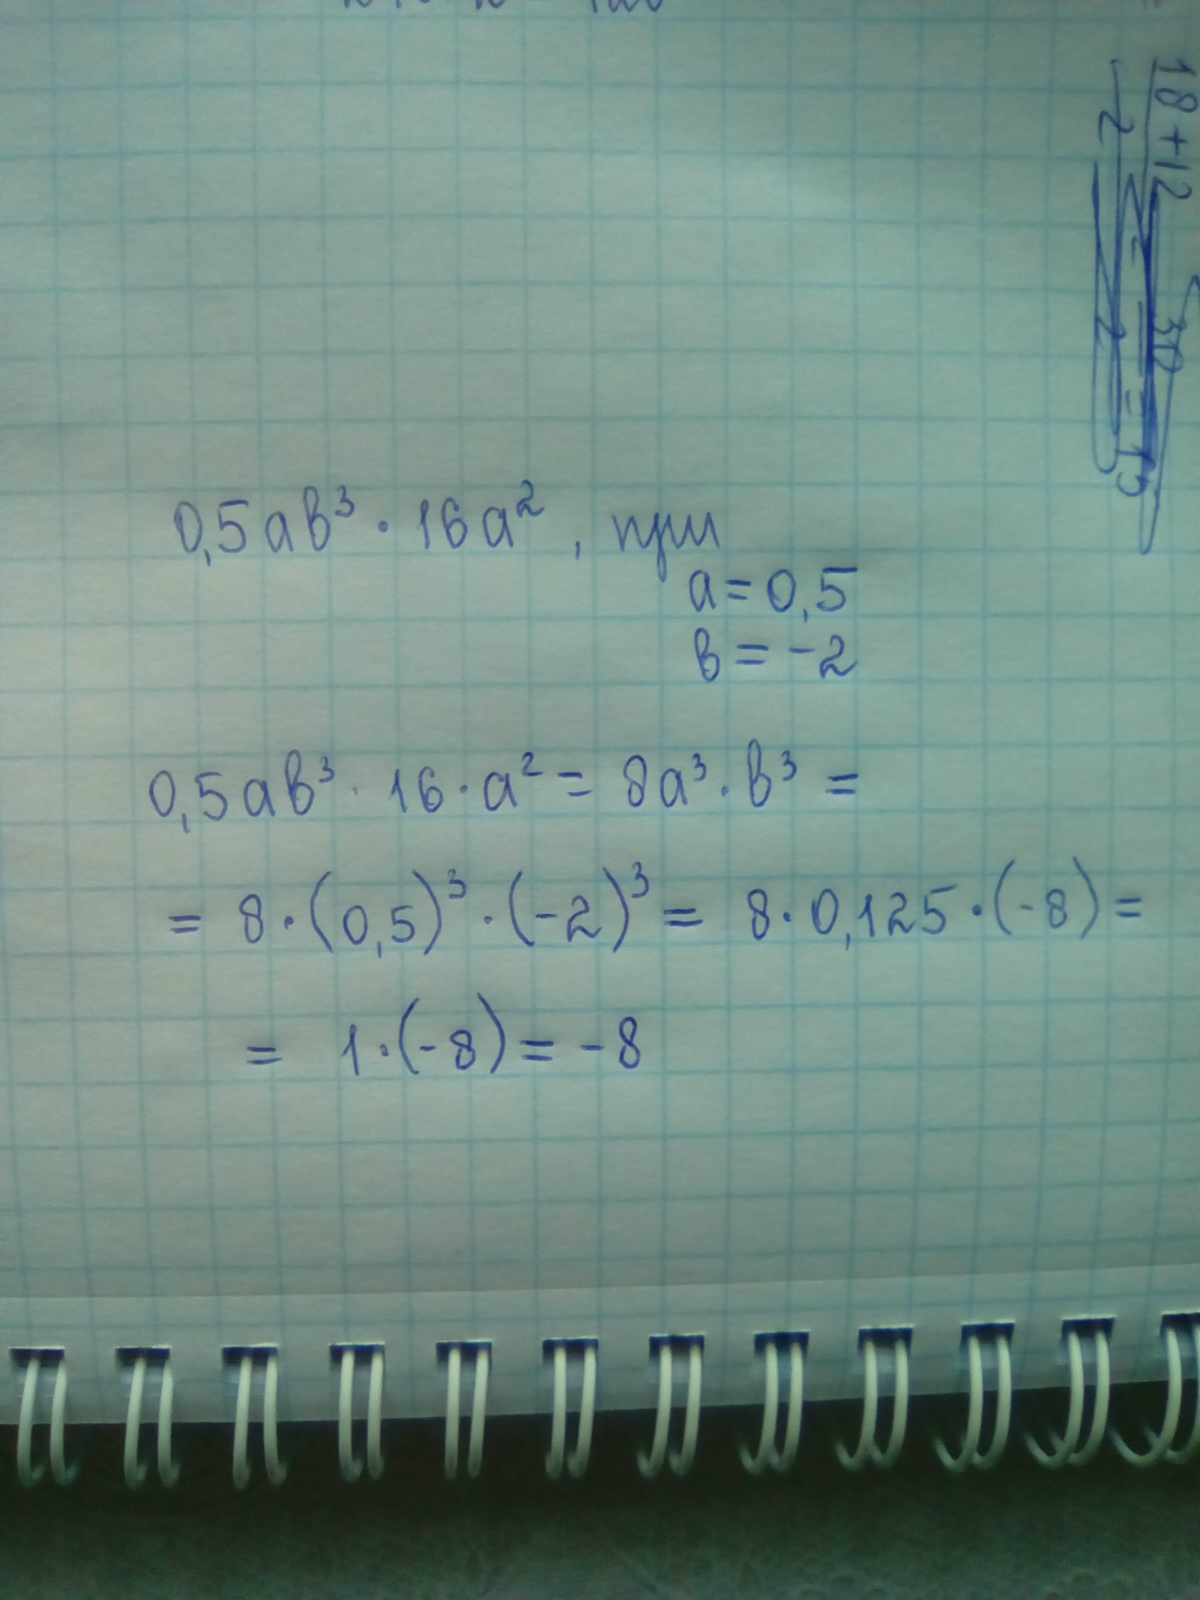 18+12
30
2
2
= 15
0,5ab³ · 16a², при
a = 0,5
b = -2
0,5ab³ · 16 · a² = 8a³ · b³ =
= 8 · (0,5)³ · (-2)³ = 8 · 0,125 · (-8) =
= 1 · (-8) = -8